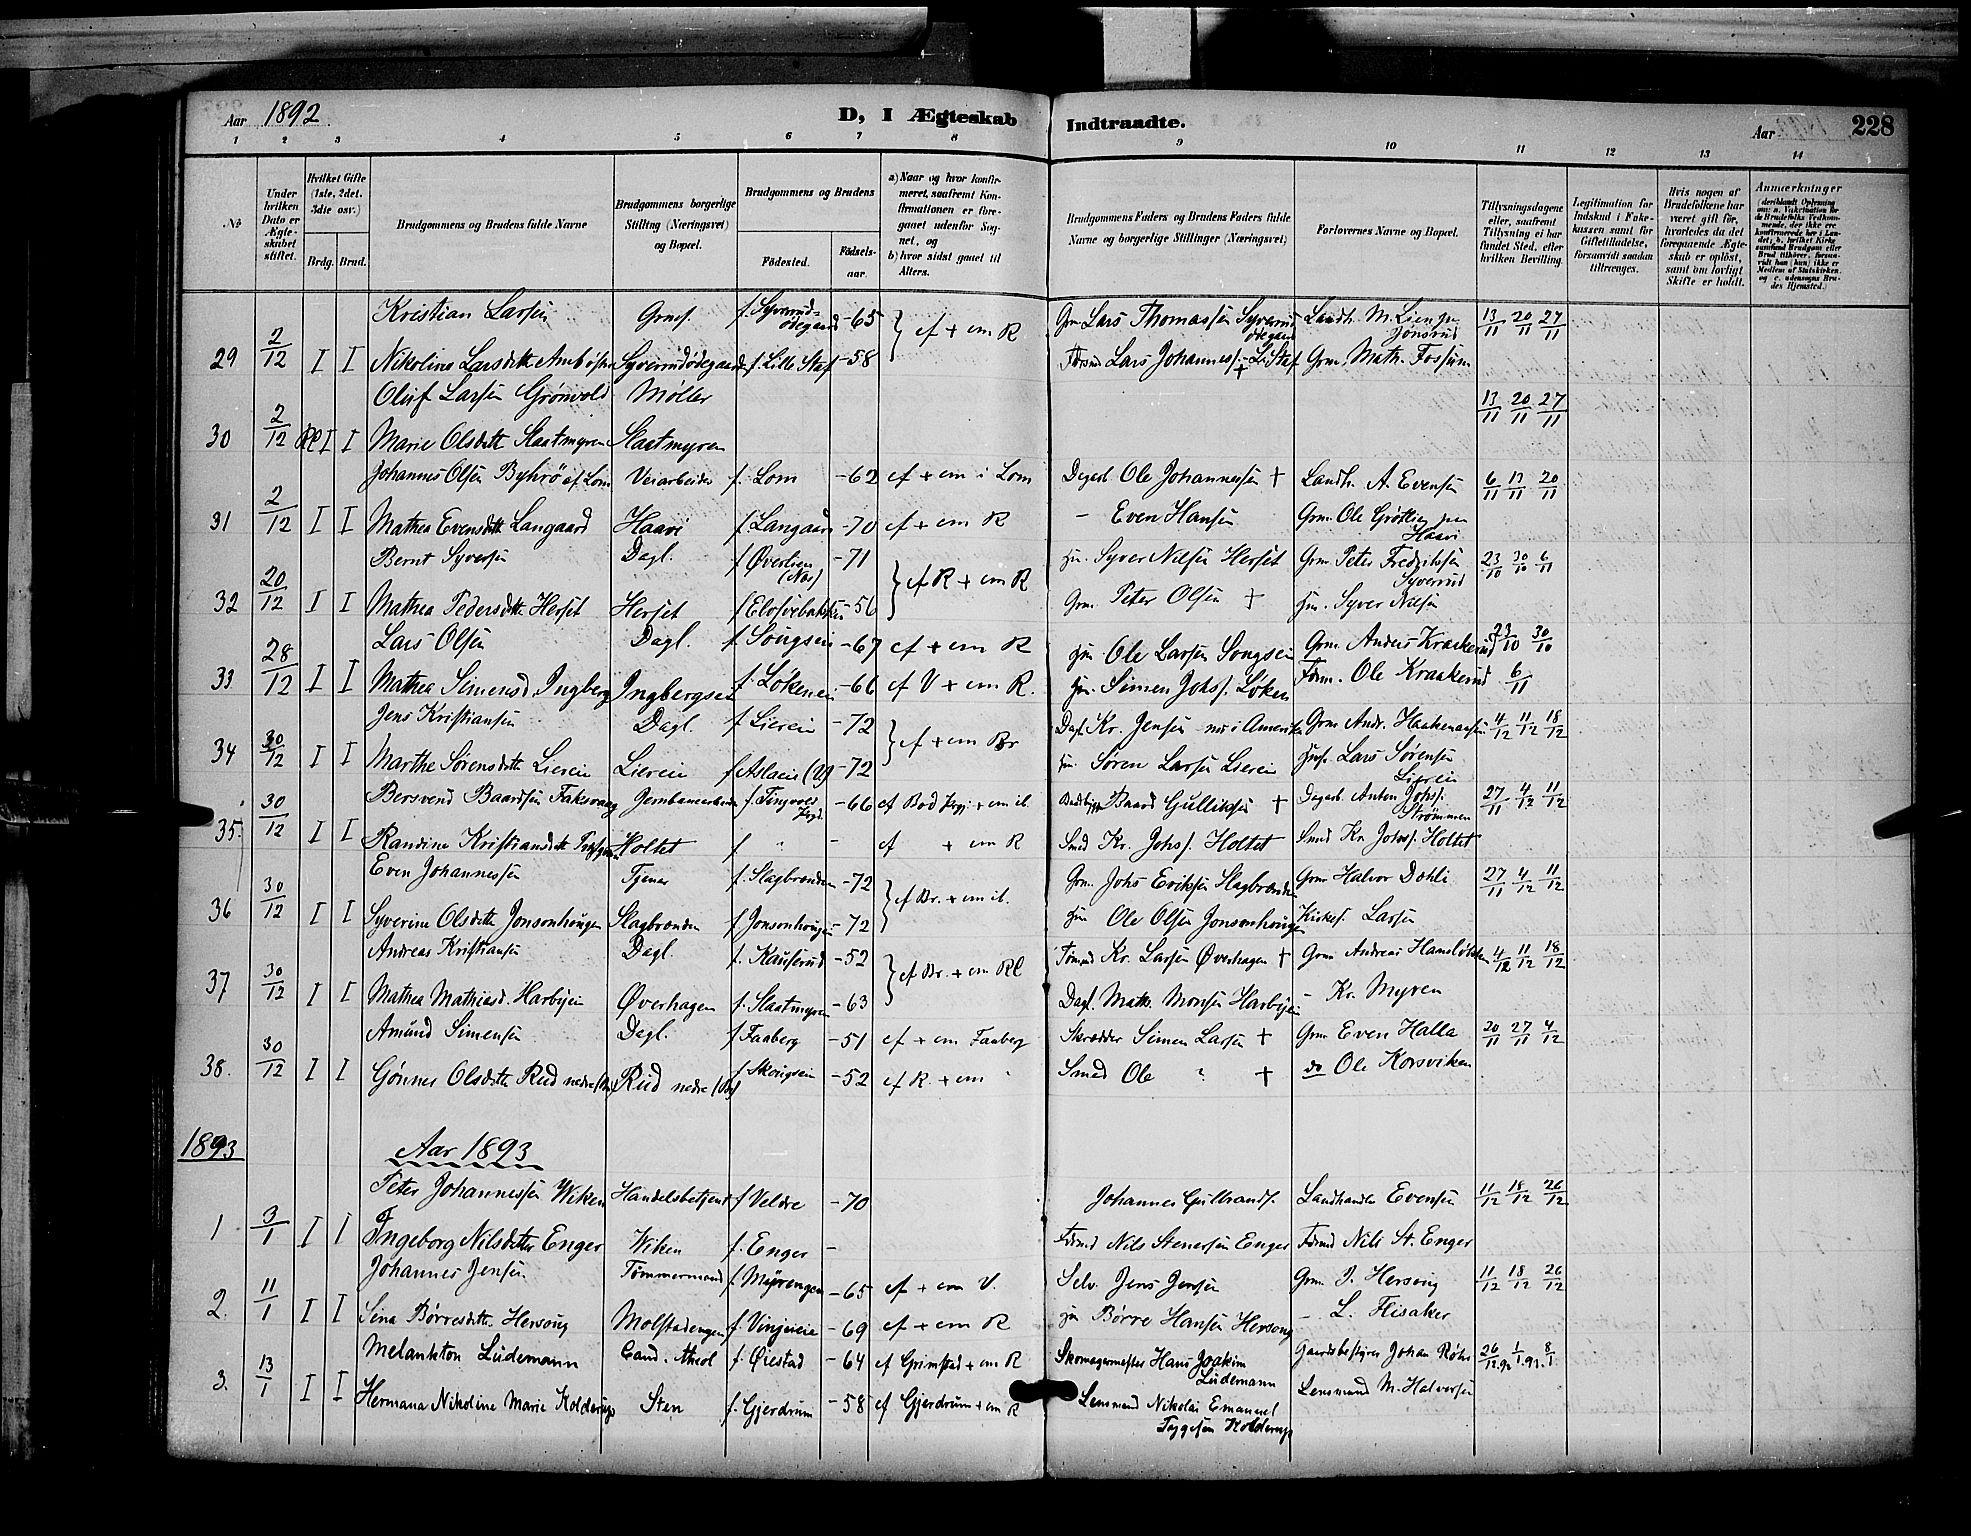 Aar 1892
D, I Ægteskab Indtraadte.
Aar 228
1 2 3 4 5 6 7 8 9 10 11 12 13 14
No
Under hvilken Dato er Ægteskabet stiftet.
Hvilket Gifte (1ste, 2det, 3die osv.)
Brdg. Brud.
Brudgommens og Brudens fulde Navne
Brudgommens borgerlige Stilling (Næringsvei) og Bopæl.
Brudgommens og Brudens
Fødested. Fødselsaar.
a) Naar og hvor konfirmeret, saafremt Konfirmationen er foregaaet udenfor Sognet, og
b) hvor sidst gaaet til Alters.
Brudgommens Faders og Brudens Faders fulde Navne og borgerlige Stillinger (Næringsvei)
Forlovernes Navne og Bopæl.
Tillysningsdagene eller, saafremt Tillysning ei har fundet Sted, efter hvilken Bevilling.
Legitimation for Indskud i Fakekassen samt for Giftetilladelse, forsaavidt saadan tiltrænges.
Hvis nogen af Brudefolkene har været gift før, hvorledes da det foregaaende Ægteskab er opløst, samt om lovligt Skifte er holdt.
Anmærkninger
Kristian Larsen Grmf. f. Syverudødegaard -65 } cf + cm R Grm Lars Thomassen Syverudødegaard Landh. M. Lien Jønsrud 13/11 20/11 27/11
29 2/12 I I Nikoline Larsdtr Syverudødegaard f. Lille Staf -58 Lars Johanness. L. Staf + Grm. Math. Fossum
Oluf Larsen Grønvold Møller 13/11 20/11 27/11
30 2/12 I I Marie Olsdtr Slaatmyren Slaatmyren
Johannes Olsen Byhrø af Lom Veiarbeider f. Lom -62 cf + cm i Lom Dagarb Ole Johannessen + Landh. A. Evensen 6/11 13/11 20/11
31 2/12 I I Mathea Evensdtr Langaard Haavi f. Langaard -70 cf + cm R - Even Hansen Grm. Ole Grøtlien Haavi
Bernt Syversen Dagl. f Øverlien (Næs) -71 } cf R + cm R Hm. Syver Nilsen Herset Grm. Peter Fredriksen Syverud 23/10 30/10 6/11
32 20/12 I I Mathea Pedersdtr Herset Herset -56 Grm. Peter Olsen + Hm. Syver Nilsen
Lars Olsen Dagl. f. Songeie -67 cf + cm R Hm Ole Larsen Songeie Grm. Anders Kraakerud 23/10 30/10
33 28/12 I I Mathea Simensd Ingberg Ingbergseie f. Løkeneie -66 cf V + cm R. Hm. Simen Johs. Løken Fdrm. Ole Kraakerud 6/11
Jens Kristiansen Dagl. f Liereie -72 } cf + cm Br Dagl. Kr. Jensen nu i Amerika Grm Andr. Haakenaasen 4/12 11/12 18/12
34 30/12 I I Marthe Sørensdtr Liereie Liereie f Aslaeie (V) -72 Hm. Søren Larsen Liereie Husf. Lars Sørensen Liereie
Bersvend Baardsen Faksvaag Jernbanearbeider f. Tingvold -66 Baard Gulliksen + Dagarb. Anton Johs. Strømmen 27/11 4/12 11/12
35. 30/12 I I Randine Kristiansdtr Holtet f " - cf + cm R Smed Kr. Johs. Holtet Smed Kr. Johs. Holtet
Even Johannessen Tjener f. Slagbrenden -72 } cf Br. + cm ib. Grm. Johs Eriksen Slagbrenden Grm Halvor Dahli 27/11 4/12 11/12
36 30/12 I I Syverine Olsdtr Jonsonhaugen Slagbrenden f Jonsonhaugen -72 Hm Ole Olsen Jonsonhaugen Kirkes. Larsen
Andreas Kristiansen Dagl. f. Kauserud -52 } cf Br. + cm Rl Tømmd Kr. Larsen Øverhagen + Grm Andreas 4/12 11/12 18/12
37 30/12 I I Mathea Mathiasd. Harbyeie Øverhagen f. Slaatmyren -63 Dagl. Math. Monsen Harbyeie - Kr. Myren
Amund Simensen Dagl. f Faaberg -51 cf + cm Faaberg Skrædder Simen Larsen + Grm Even Halla 20/11 27/11 4/12
38. 30/12 I I Gønner Olsdtr Rud nedre Rud nedre f Skougseie -52 cf R. + cm " Smed Ole " + do Ole Korsviken
1893 Aar 1893
Peter Johannessen Wiken Handelsbetjent f Veldre -70 Johannes Gulbrands. Landhandler Evensen 11/12 18/12 26/12
1 3/1 I I Ingeborg Nilsdatter Enger Wiken f. Enger - Fdrmd Nils Stenersen Enger Fdrmd Nils St. Enger
Johannes Jensen Tømmermand f Myrengen -65 cf + cm V. Selv. Jens Jensen Grm. P. Hersoug 11/12 18/12 26/12
2. 11/1 I I Sina Børresdtr. Hersoug Molstadengen f Vinjueie -69 cf + cm R Hm Børre Hansen Hersoug - L. Flisaker
Melankton Lüdemann Cand. theol f. Ørestad -64 cf Grimstad + cm R Skomagermester Hans Joakim Lüdemann Gaardsbestyrer Johan Røhr 26/12.92 1/1.93. 8/1
3. 13/1 I I Hermana Nikoline Marie Kolderup Sten f. Gjerdrum -58 cf Gjerdrum + cm R Lensmand Nikolai Emanuel Tygesen Kolderup Lensmand M. Halvorsen